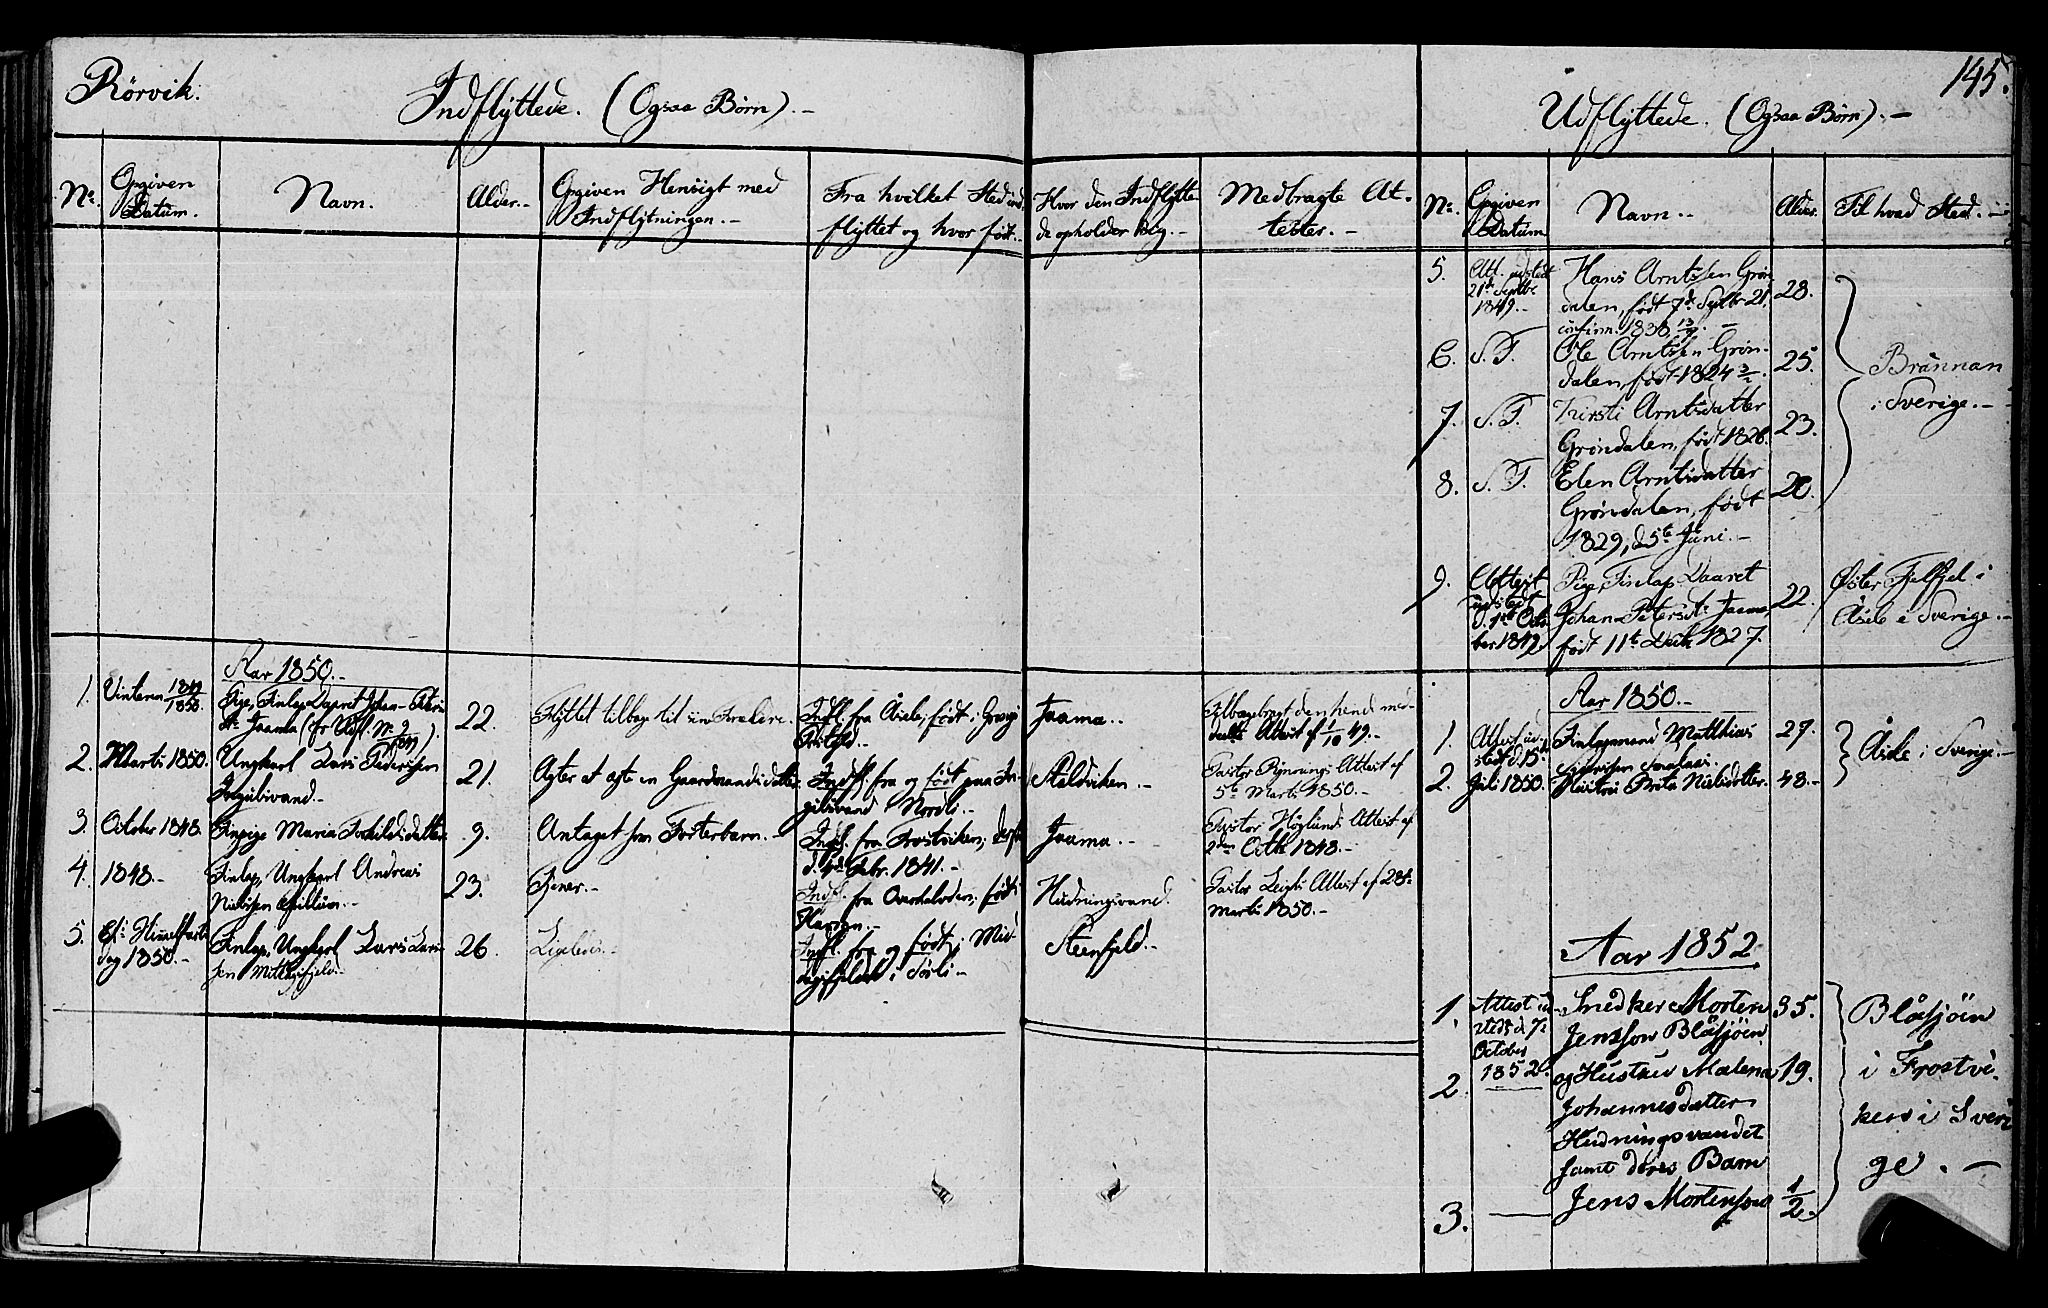 Rörvik.
Indflÿttede. (Ogsaa Børn). -
No.
Opgiven Datum.
Navn.
Alder. -
Opgiven Hensigt med
Indflytningen. -
Fra hvilket Sted ind-
flÿttet og hvor født. -
Hvor den Indflÿtte-
de opholder sig. -
Medbragte At-
tester. -
Aar 1850. -
1. Vinteren 1849/1850.
Pige, Finlap Daaret Johan
Jaama
22.
Flyttet tilbage til sine Forældre. -
Indfl. fra Åsele, født i
Jaama. -
Tilbagebragt den hende med-
deelte Attest af 1/10 49. -
2. Marti 1850.
Ungkarl Lars Pedersen
Ingulsvand. -
21.
Agter at ægte en Gaardmandsdatter
Indfl. fra og født paa In-
gulsvand Nordli. -
Pastor Attest af
5te Marti 1850. -
3. October 1848.
Maria Torkildsdatter
9.
Antaget som Fosterbarn. -
Indfl. fra Frostviken,
d. Febr. 1841. -
Jaama. -
Pastor Höglunds Attest af
2den Octb. 1848. -
4. 1848. -
Finlap, Ungkarl Andreas
Nielssen
23.
Tjener. -
Indfl. fra Overhalden, født i
Hudningsvand.
Pastor Attest af 28de
Marti 1850. -
5.
dag 1850. -
Finlap, Ungkarl Lars Lars-
sen Mittagsfjeld. -
26.
Ligeledes. -
Indfl. fra og født i Mid-
dagsfjeldet i Sørli -
Steenfjeld. -
145.
Udflÿttede. (Ogsaa Børn). -
No.
Opgiven
Datum
Navn. -
Alder.
Til hvad Sted. -
5. Att. udstedt
21de Septbr
1849. -
Hans Arntssen Grøn-
dalen, født 7de Septbr 21,
confirm. 1838
28.
6. S. T.
Ole Arntsen Grøn-
dalen, født 1824
25.
Brännan
i Sverige. -
7. S. T.
Kirsti Arntsdatter
Grøndalen, født 1826.
23.
8. S. T.
Elen Arntsdatter
Grøndalen, født
1829, d. 5te Juni. -
20.
9. Attest
udstedt
d. 1ste Octo-
ber 1849
Pige, Finlap Daaret
Johan Petersdr. Jaama,
født 11te Decbr 1827.
22.
Øster Fjelfjel i
Åsele i Sverige. -
Aar 1850. -
1. Attest ud-
stedt d. 15de
Finlapmand Matthias
27.
Åsele i Sverige. -
2. Juli 1850.
Hustru Brita Nilsdotter. -
48. -
Aar 1852
1. Attest ud-
stedt d. 7de
October
1852.
Snedker Morten
Jenssøn Blåsjöen
35.
Blåsjöen
i Frostvi-
ken i Sveri
ge. -
2.
og Hustru Malena
Johannesdatter
Hudningsvandet
samt deres Barn
19.
3.
Jens Mortenssøn
1/2.